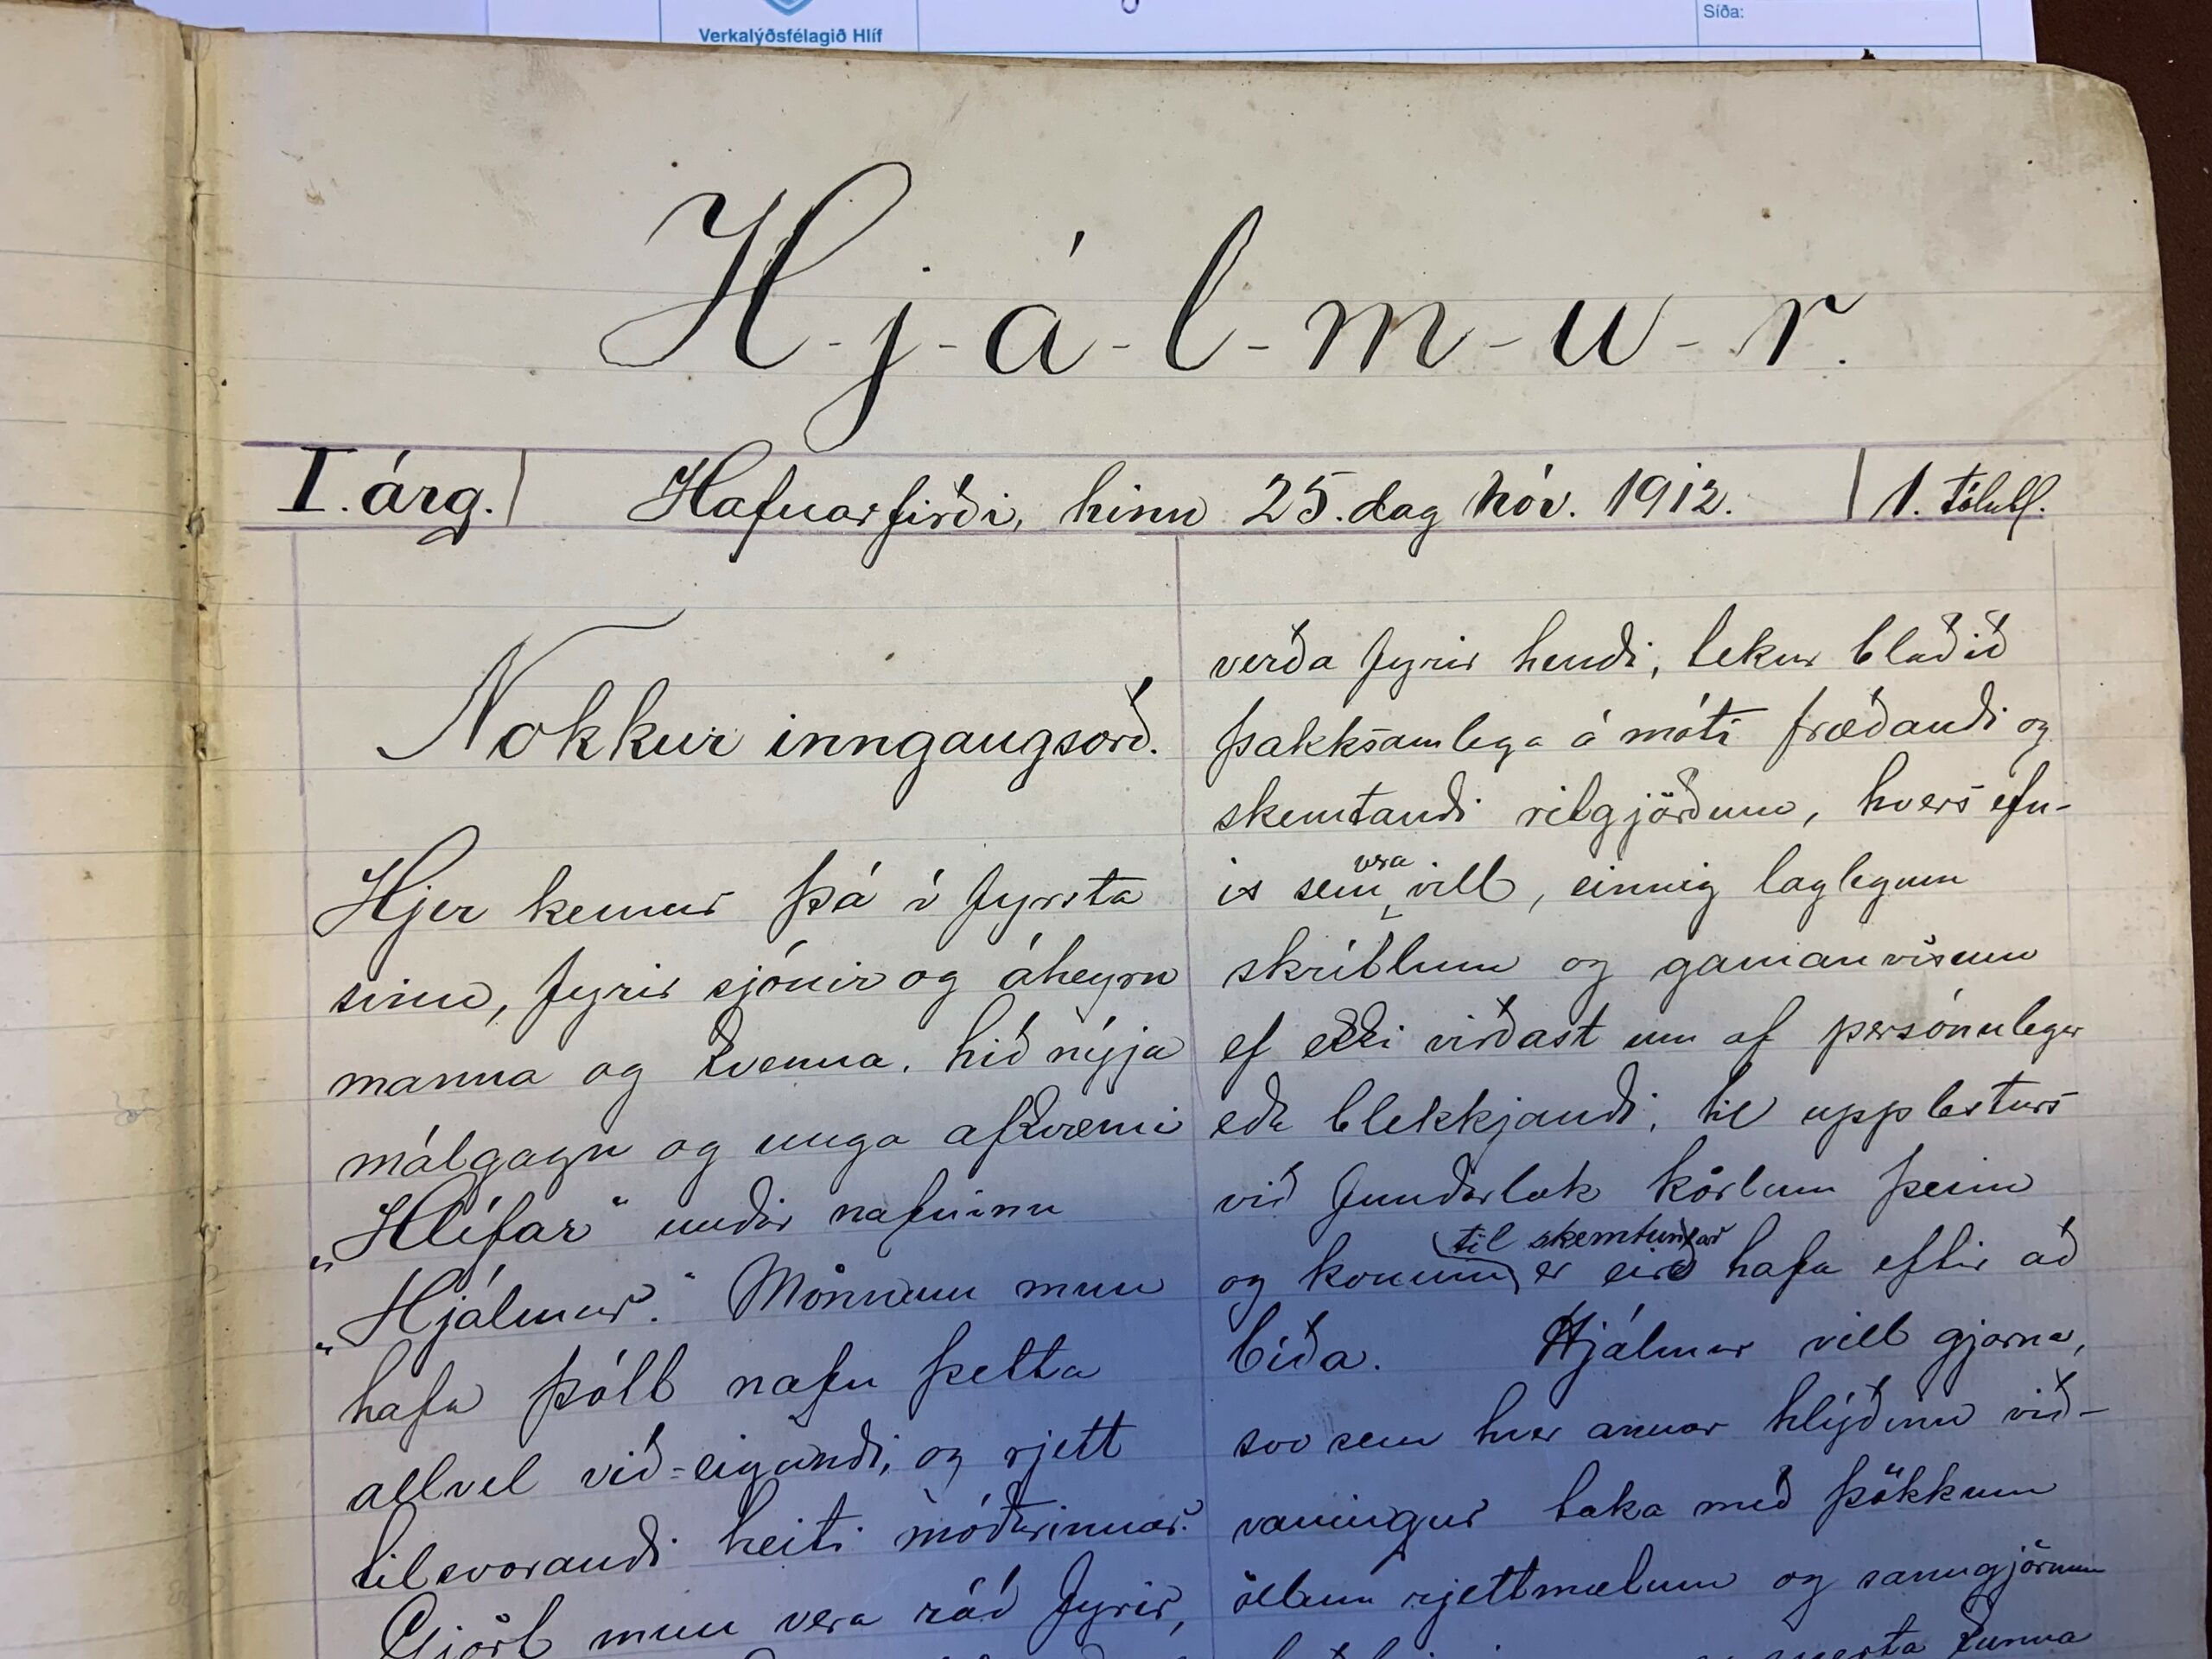 Verkalýðsfélagið Hlíf
Síða:
H-j-á-l-m-u-r.
I. árg.
Hafnarfirði, hinn 25. dag nóv. 1912.
1. tölubl.
Nokkur inngangsorð.
Hjer kemur þá í fyrsta
sinn, fyrir sjónir og áheyrn
manna og kvenna, hið nýja
málgagn og unga afkvæmi
„Hlífar“ undir nafninu
„Hjálmur.“ Mönnum mun
hafa þótt nafn þetta
allvel við-eigandi, og rjett
tilsvarandi heiti móðurinnar.
Gjört mun vera ráð fyrir,
verða fyrir hendi, tekur blaðið
þakksamlega á móti fræðandi og
skemtandi ritgjörðum, hvers efn-
is sem vera vill, einnig laglegum
skrítlum og gamanvísum
ef ekki virðast um of persónulegar
eða blekkjandi, til upplesturs
við fundarlok körlum þeim
og konum til skemtunar er eirð hafa eftir að
bíða. Hjálmur vill gjarna,
svo sem hver annar hlýðinn við-
vaningur taka með þökkum
öllum rjettmætum og sanngjörnum
kunna